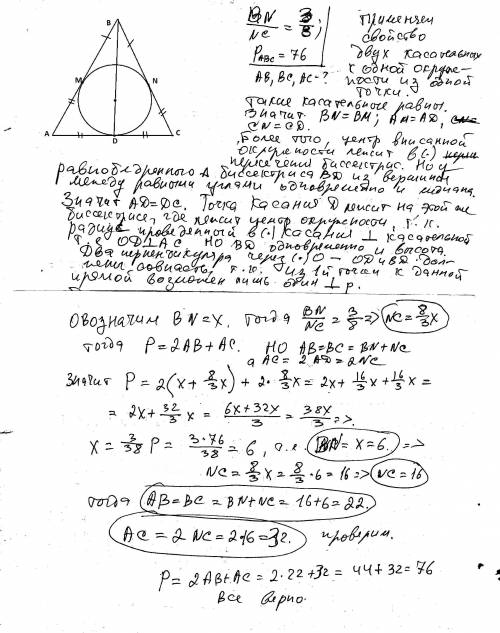 B
M
N
A
D
C
BN/NC = 3/8;
P_ABC = 76
AB, BC, AC - ?
Применяем
свойство
двух касательных
к одной окруж-
ности из одной
точки.
Такие касательные равны.
Значит BN=BM; AM=AD,
CN=CD.
Более того, центр вписанной
окружности лежит в (·)
пересечения биссектрис. Но у
равнобедренного Δ биссектриса BD из вершины
между равными углами одновременно и медиана.
Значит AD=DC. Точка касания D лежит на этой же
биссектрисе, где лежит центр окружности, т.к.
радиус проведенный в (·) касания ⊥ касательной
т.е OD⊥AC но BD одновременно и высота.
Два перпендикуляра через (·) O – OD и BD дол-
жны совпасть, т.к. из 1й точки к данной
прямой возможен лишь один ⊥ р.
Обозначим BN=x. тогда BN/NC = 3/8 => NC = 8/3 x
тогда P=2AB+AC. но AB=BC=BN+NC
а AC=2AD=2NC
Значит P=2(x+8/3 x)+2·8/3 x=2x+16/3 x+16/3 x=
=2x+32/3 x=(6x+32x)/3=38x/3=>.
x=3/38 P=(3·76)/38=6, т.е. BN=x=6. =>
NC=8/3 x=8/3·6=16=> NC=16
тогда AB=BC=BN+NC=16+6=22.
AC=2NC=2·16=32. проверим.
P=2AB+AC=2·22+32=44+32=76
Все верно.